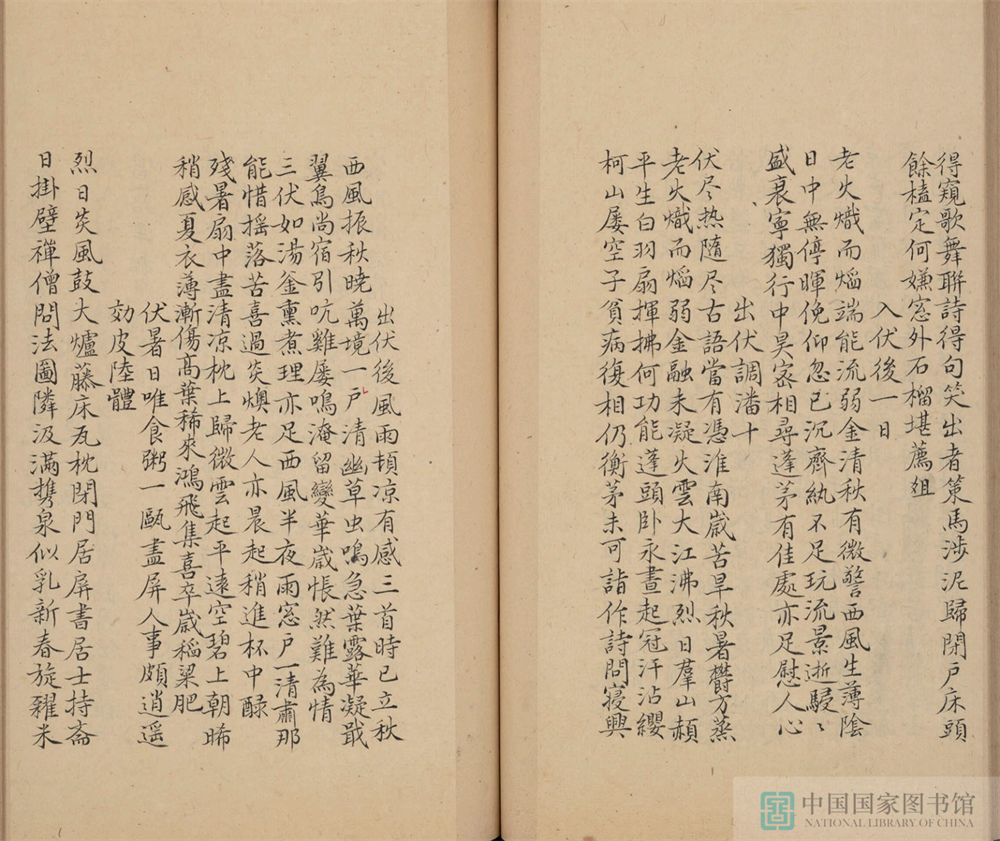 得窺歌舞聯詩得句笑出者策馬涉泥歸閉戶床頭
餘榼定何嫌窓外石榴堪薦俎
入伏後一日
老火熾而熖端能流弱金清秋有微警西風生薄陰
日中無停暉俛仰忽已沉齊紈不足玩流景逝駸〻
盛衰寧獨行中昊宻相尋蓬茅有佳處亦足慰人心
出伏調潘十
伏尽热隨尽古語當有憑淮南嵗苦旱秋暑欝方蒸
老火熾而熖弱金融未凝火雲大江沸烈日羣山赬
平生白羽扇揮拂何功能蓬頭卧永晝起冠汗沾纓
柯山屡空子貧病復相仍衡茅未可詣作詩問寝興
出伏後風雨頓凉有感三首時已立秋
西風振秋暁萬境一戸清幽草虫鳴急葉露華凝戢
翼鳥尚宿引吭雞屡鳴淹留變華嵗悵然難為情
三伏如湯釜熏煮理亦足西風半夜雨窓戸一清肅那
能惜揺落苦喜過炎燠老人亦晨起稍進杯中醁
殘暑扇中盡清凉枕上歸微雲起平遠空碧上朝晞
稍感夏衣薄漸傷髙葉稀來鴻飛集喜卒嵗稻粱肥
伏暑日唯食粥一甌盡屏人事頗逍遥
効皮陸體
烈日炎風鼓大爐藤床瓦枕閉門居屏書居士持斋
日掛壁禪僧問法圗隣汲满携泉似乳新舂旋糴米